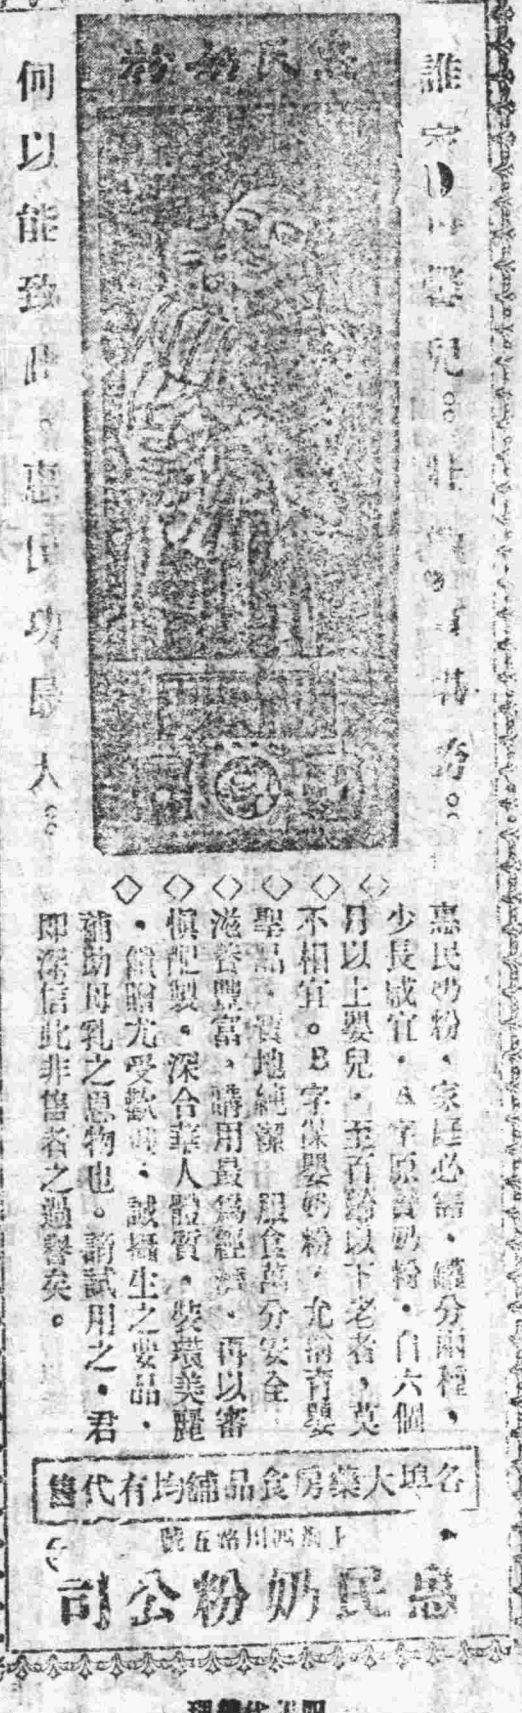 惠民奶粉
誰家嬰兒。壯
何以能致此。惠民功最大。
惠民奶粉、家庭必需、罐分兩種、
少長咸宜、A字原質奶粉、自六個
月以上嬰兒、至百齡以下老者、莫
不相宜。B字保嬰奶粉、尤稱育嬰
聖品、質地純潔 服食萬分安全
滋養豐富、購用最為經濟、再以審
慎配製、深合華人體質、裝璜美麗
、餽贈尤受歡迎、誠攝生之要品、
補助母乳之恩物也。請試用之、君
即深信此非售者之過譽矣。
各埠大藥房食品舖均有代售
上海四川路五號
惠民奶粉公司